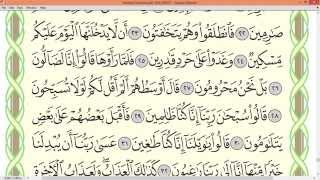 صَٰرِمِينَ ٢٢ فَٱنطَلَقُوا۟ وَهُمْ يَتَخَٰفَتُونَ ٢٣ أَن لَّا يَدْخُلَنَّهَا ٱلْيَوْمَ عَلَيْكُم
مِّسْكِينٌ ٢٤ وَغَدَوْا۟ عَلَىٰ حَرْدٍ قَٰدِرِينَ ٢٥ فَلَمَّا رَأَوْهَا قَالُوٓا۟ إِنَّا لَضَآلُّونَ
٢٦ بَلْ نَحْنُ مَحْرُومُونَ ٢٧ قَالَ أَوْسَطُهُمْ أَلَمْ أَقُل لَّكُمْ لَوْلَا تُسَبِّحُونَ
٢٨ قَالُوا۟ سُبْحَٰنَ رَبِّنَآ إِنَّا كُنَّا ظَٰلِمِينَ ٢٩ فَأَقْبَلَ بَعْضُهُمْ عَلَىٰ بَعْضٍ
يَتَلَٰوَمُونَ ٣٠ قَالُوا۟ يَٰوَيْلَنَآ إِنَّا كُنَّا طَٰغِينَ ٣١ عَسَىٰ رَبُّنَآ أَن يُبْدِلَنَا
خَيْرًا مِّنْهَآ إِنَّآ إِلَىٰ رَبِّنَا رَٰغِبُونَ ٣٢ كَذَٰلِكَ ٱلْعَذَابُ وَلَعَذَابُ ٱلْءَاخِرَةِ